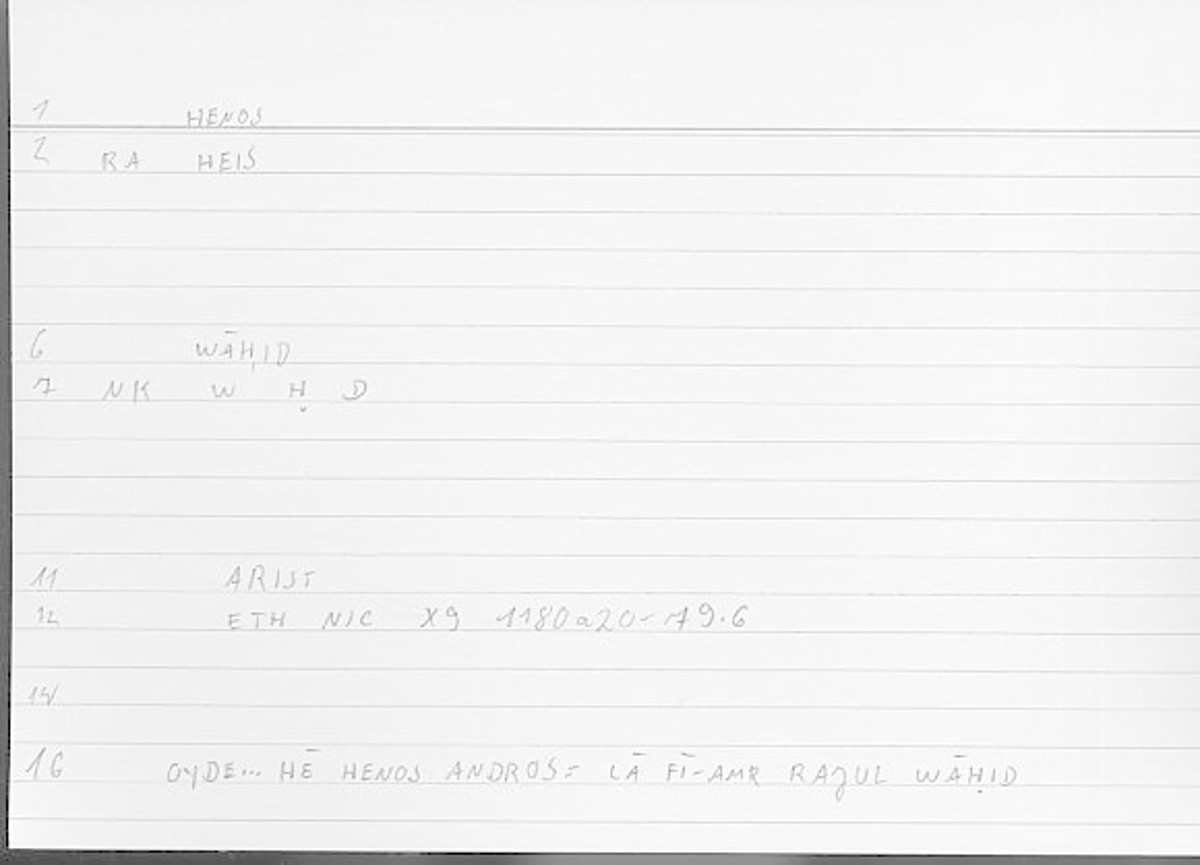 1 HENOS
2 RA HEIS
6 WĀḤID
7 NK W Ḥ D
11 ARIST
12 ETH NIC X9 1180a20-
16 OYDE... HĒ HENOS ANDROS= LĀ FĪ-AMR RAJUL WĀḤID